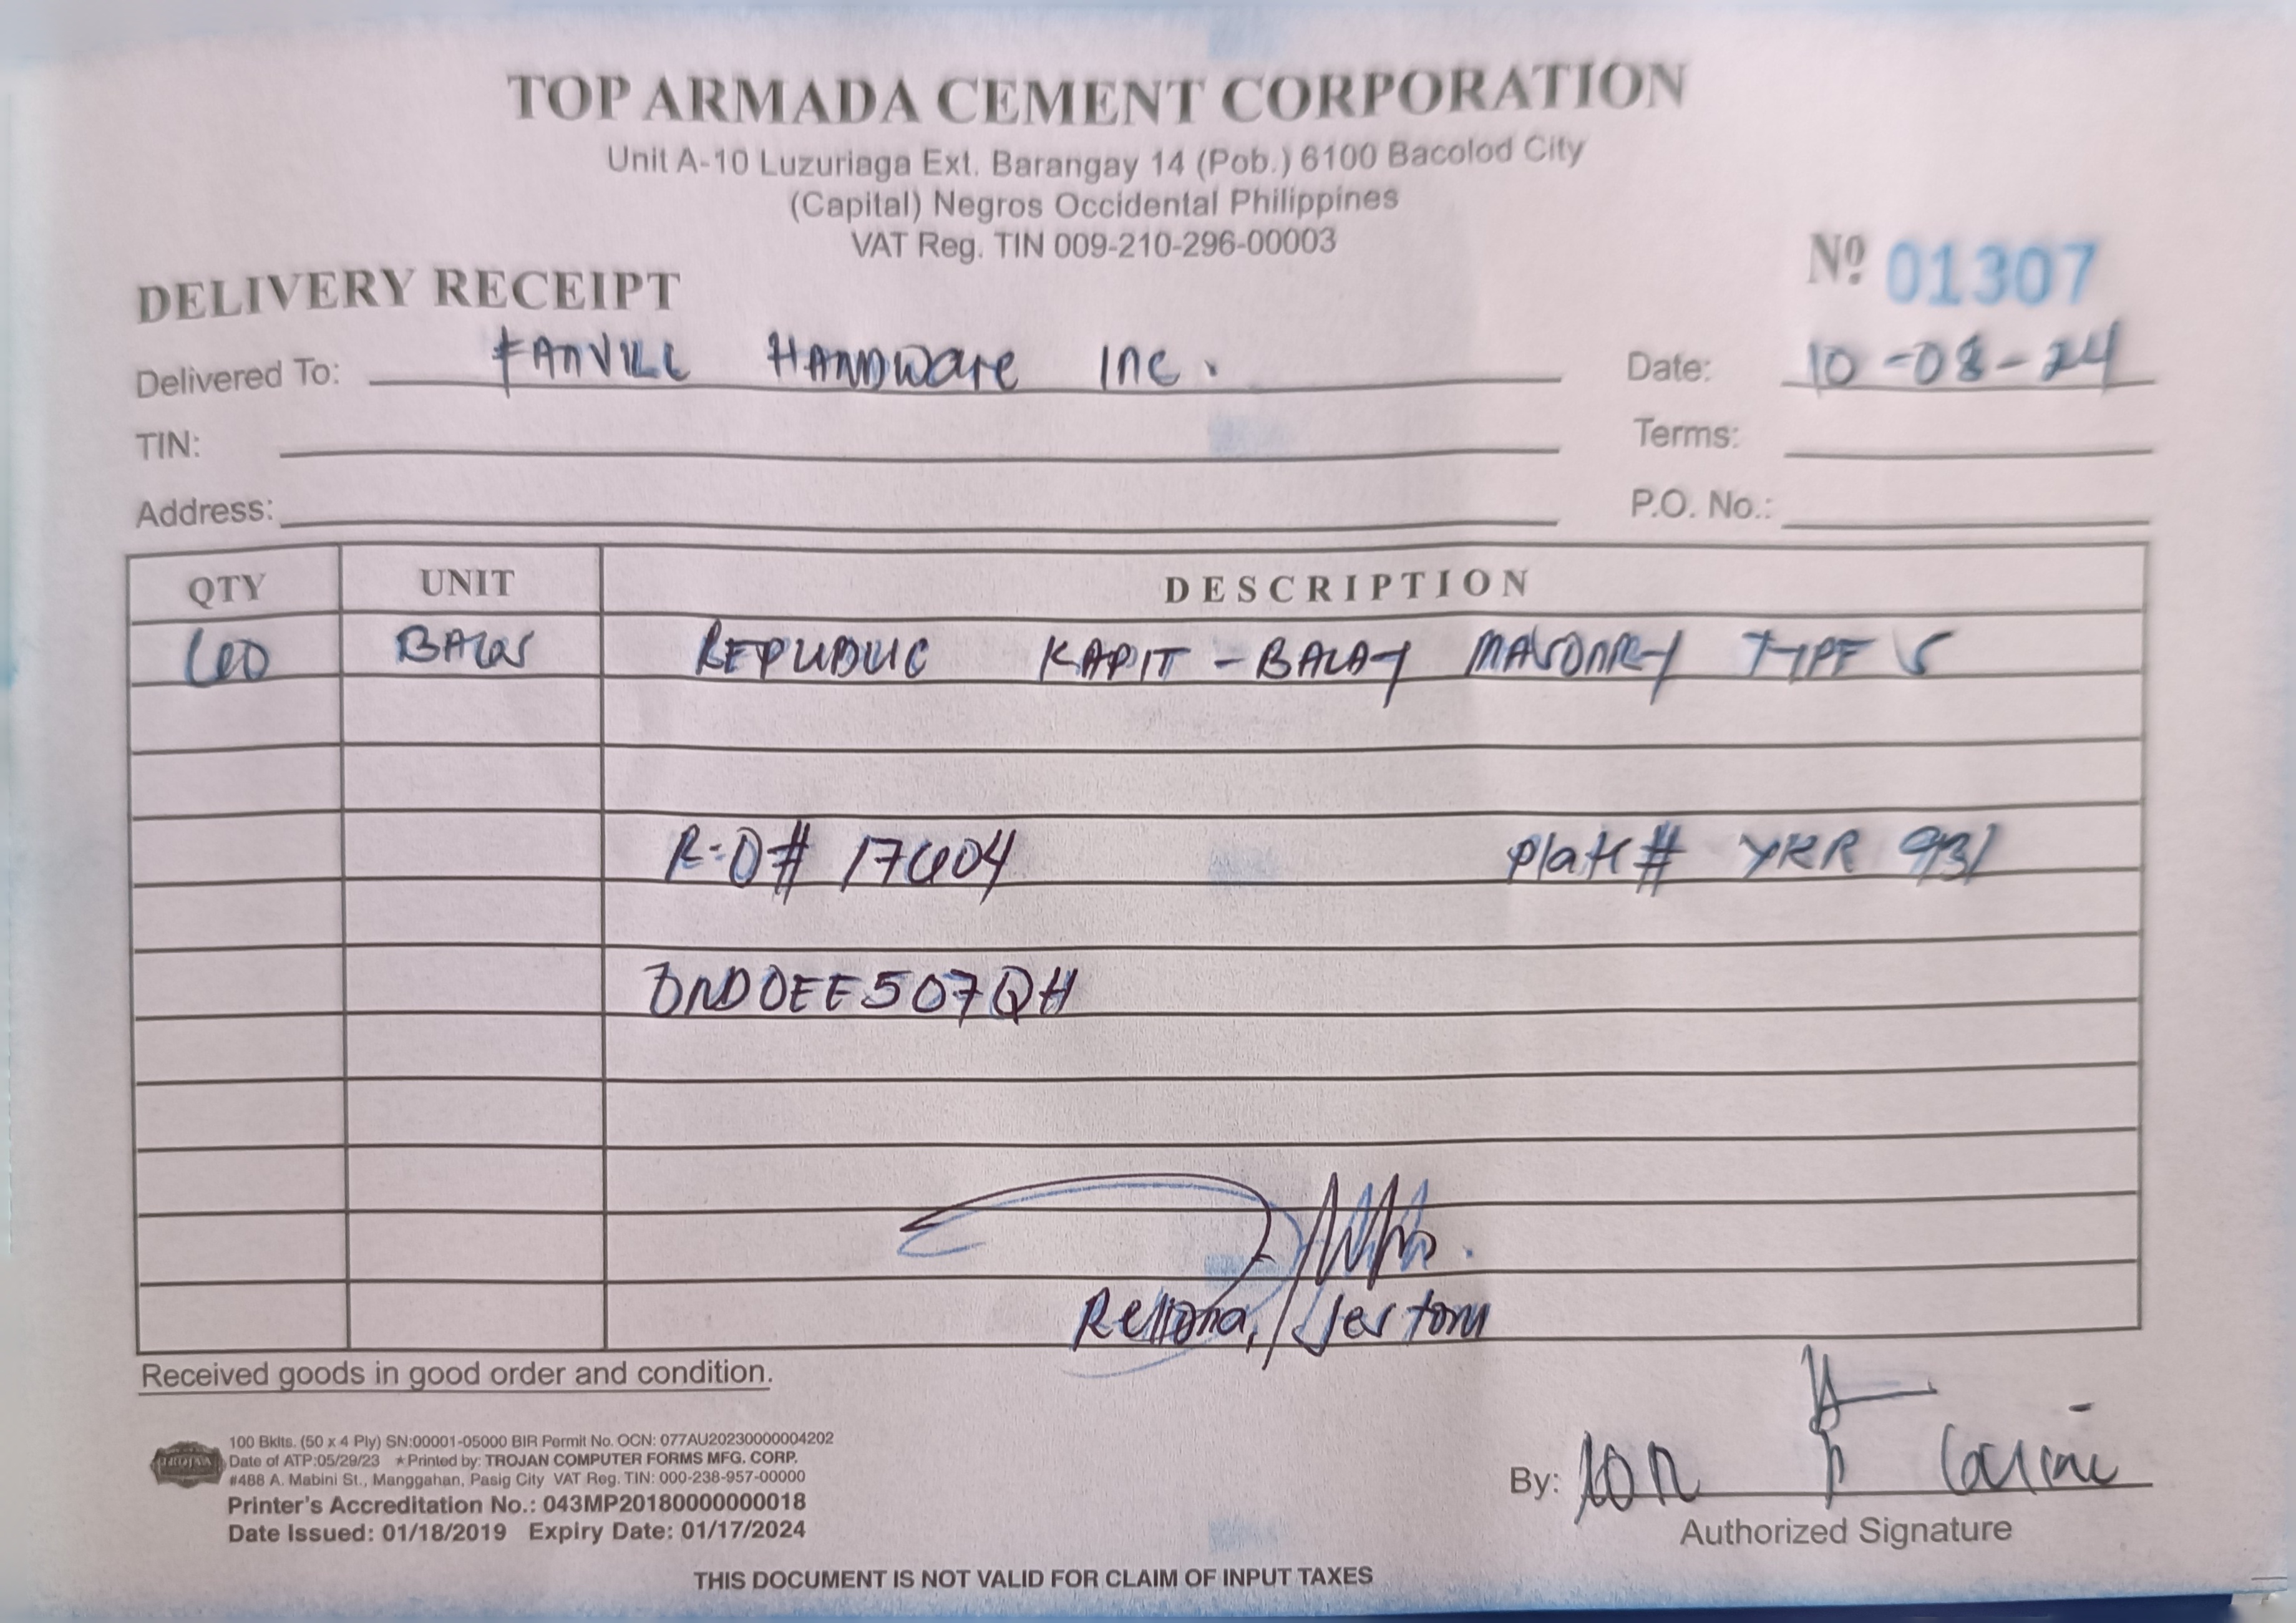 TOP ARMADA CEMENT CORPORATION
Unit A-10 Luzuriaga Ext. Barangay 14 (Pob.) 6100 Bacolod City
(Capital) Negros Occidental Philippines
VAT Reg. TIN 009-210-296-00003
Nº 01307
DELIVERY RECEIPT
Delivered To: FANVILL HARDWARE INC.
Date: 10-08-24
TIN:
Terms:
Address:
P.O. No.:
QTY UNIT DESCRIPTION
600 BAGS REPUBLIC KAPIT-BALAY MASONRY TYPE S
R-O# 17604 Plate# YKR 931
DND0EE507QH
Rellona, Jestoni
Received goods in good order and condition.
TROJAN
100 Bklts. (50 x 4 Ply) SN:00001-05000 BIR Permit No. OCN: 077AU20230000004202
Date of ATP:05/29/23 ★Printed by: TROJAN COMPUTER FORMS MFG. CORP.
#488 A. Mabini St., Manggahan, Pasig City VAT Reg. TIN: 000-238-957-00000
Printer's Accreditation No.: 043MP20180000000018
Date Issued: 01/18/2019 Expiry Date: 01/17/2024
By:
Authorized Signature
THIS DOCUMENT IS NOT VALID FOR CLAIM OF INPUT TAXES